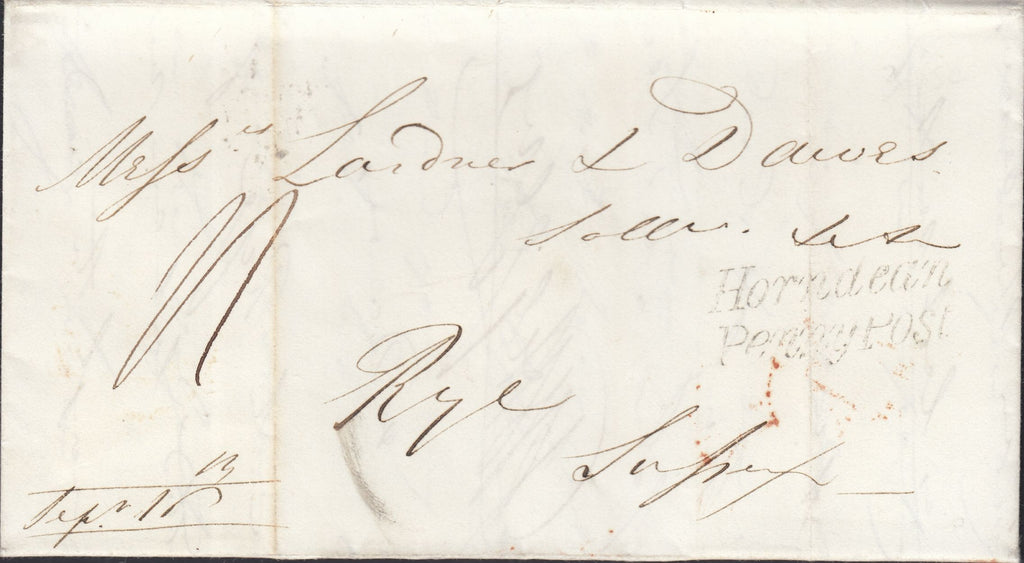 Messrs Lardner & Dawes
Sollrs. &c &c
Horndean
Penny Post
Rye
Sussex